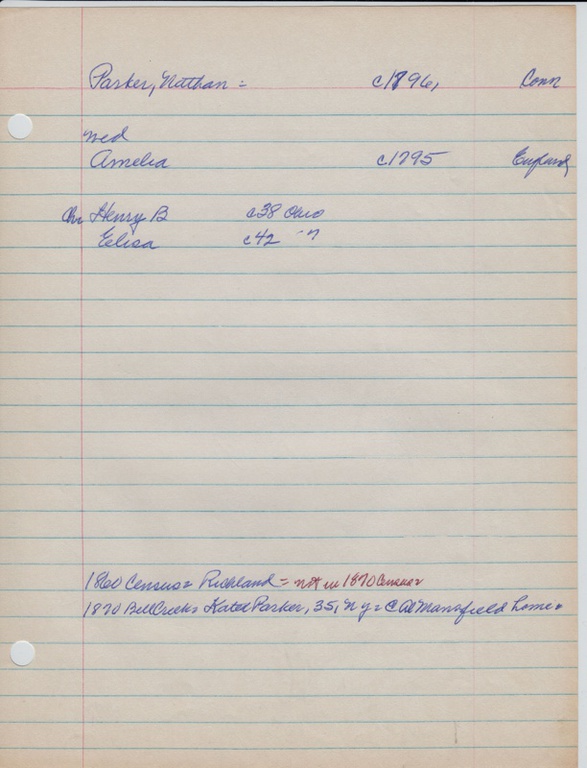 Parker, Nathan = c1796, Conn
md
Amelia c1795 England
Ch Henry B c38 Ohio
Eliza c42 "
1860 Census = Richland = not in 1870 Census
1870 Bell Creek = Kate Parker, 35, N Y = C Mansfield home.